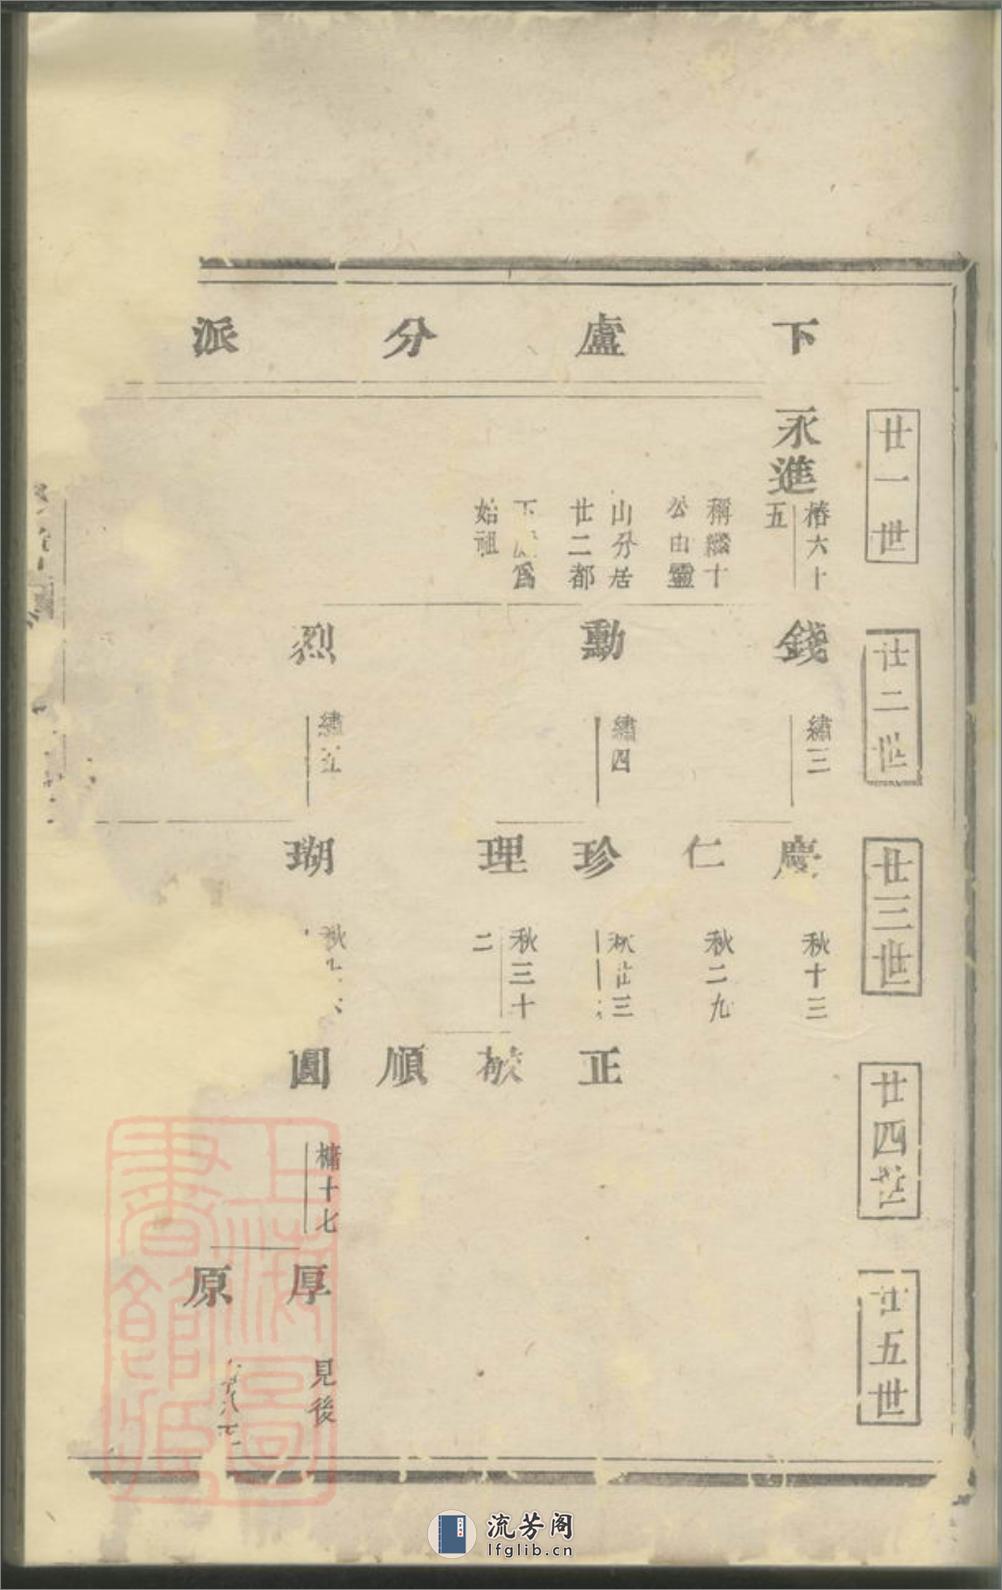 下盧分派
廿一世
永進
椿六十
五
稱繼十
公由靈
山分居
廿二都
下盧爲
始祖
廿二世
錢
繡三
勳
繡四
烈
繡五
廿三世
慶
秋十三
仁
秋二九
珍
秋廿三
理
秋三十
二
瑚
秋
廿四世
正
順
圓
槦十七
廿五世
厚
見後
原
上海圖書館藏
流芳阁
lfglib.cn